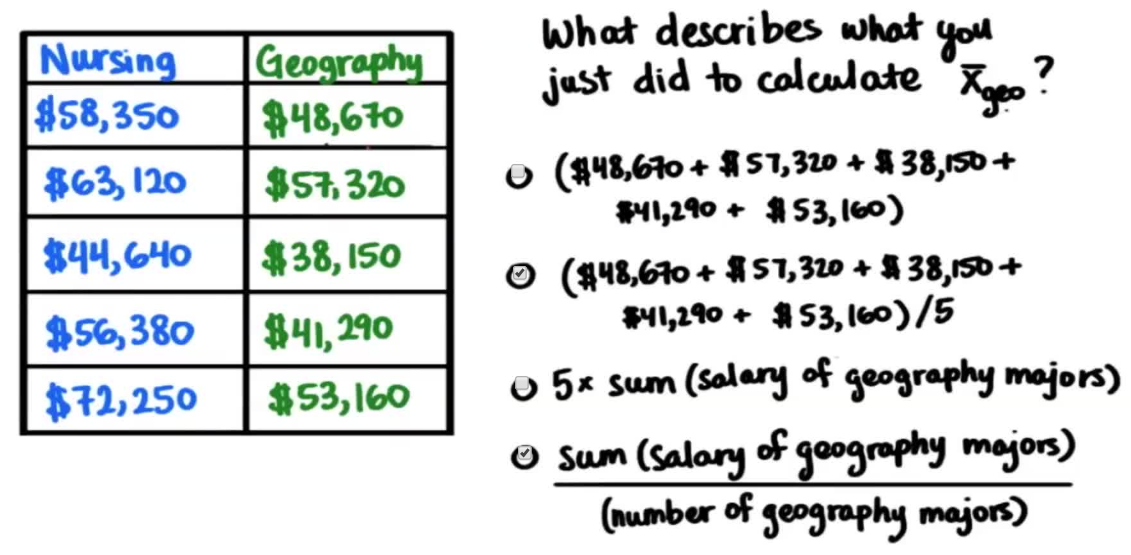 Nursing Geography
$58,350 $48,670
$63,120 $57,320
$44,640 $38,150
$56,380 $41,290
$72,250 $53,160
What describes what you
just did to calculate x̄geo?
($48,670 + $57,320 + $38,150 +
$41,290 + $53,160)
($48,670 + $57,320 + $38,150 +
$41,290 + $53,160)/5
5x sum (salary of geography majors)
sum (salary of geography majors)
(number of geography majors)